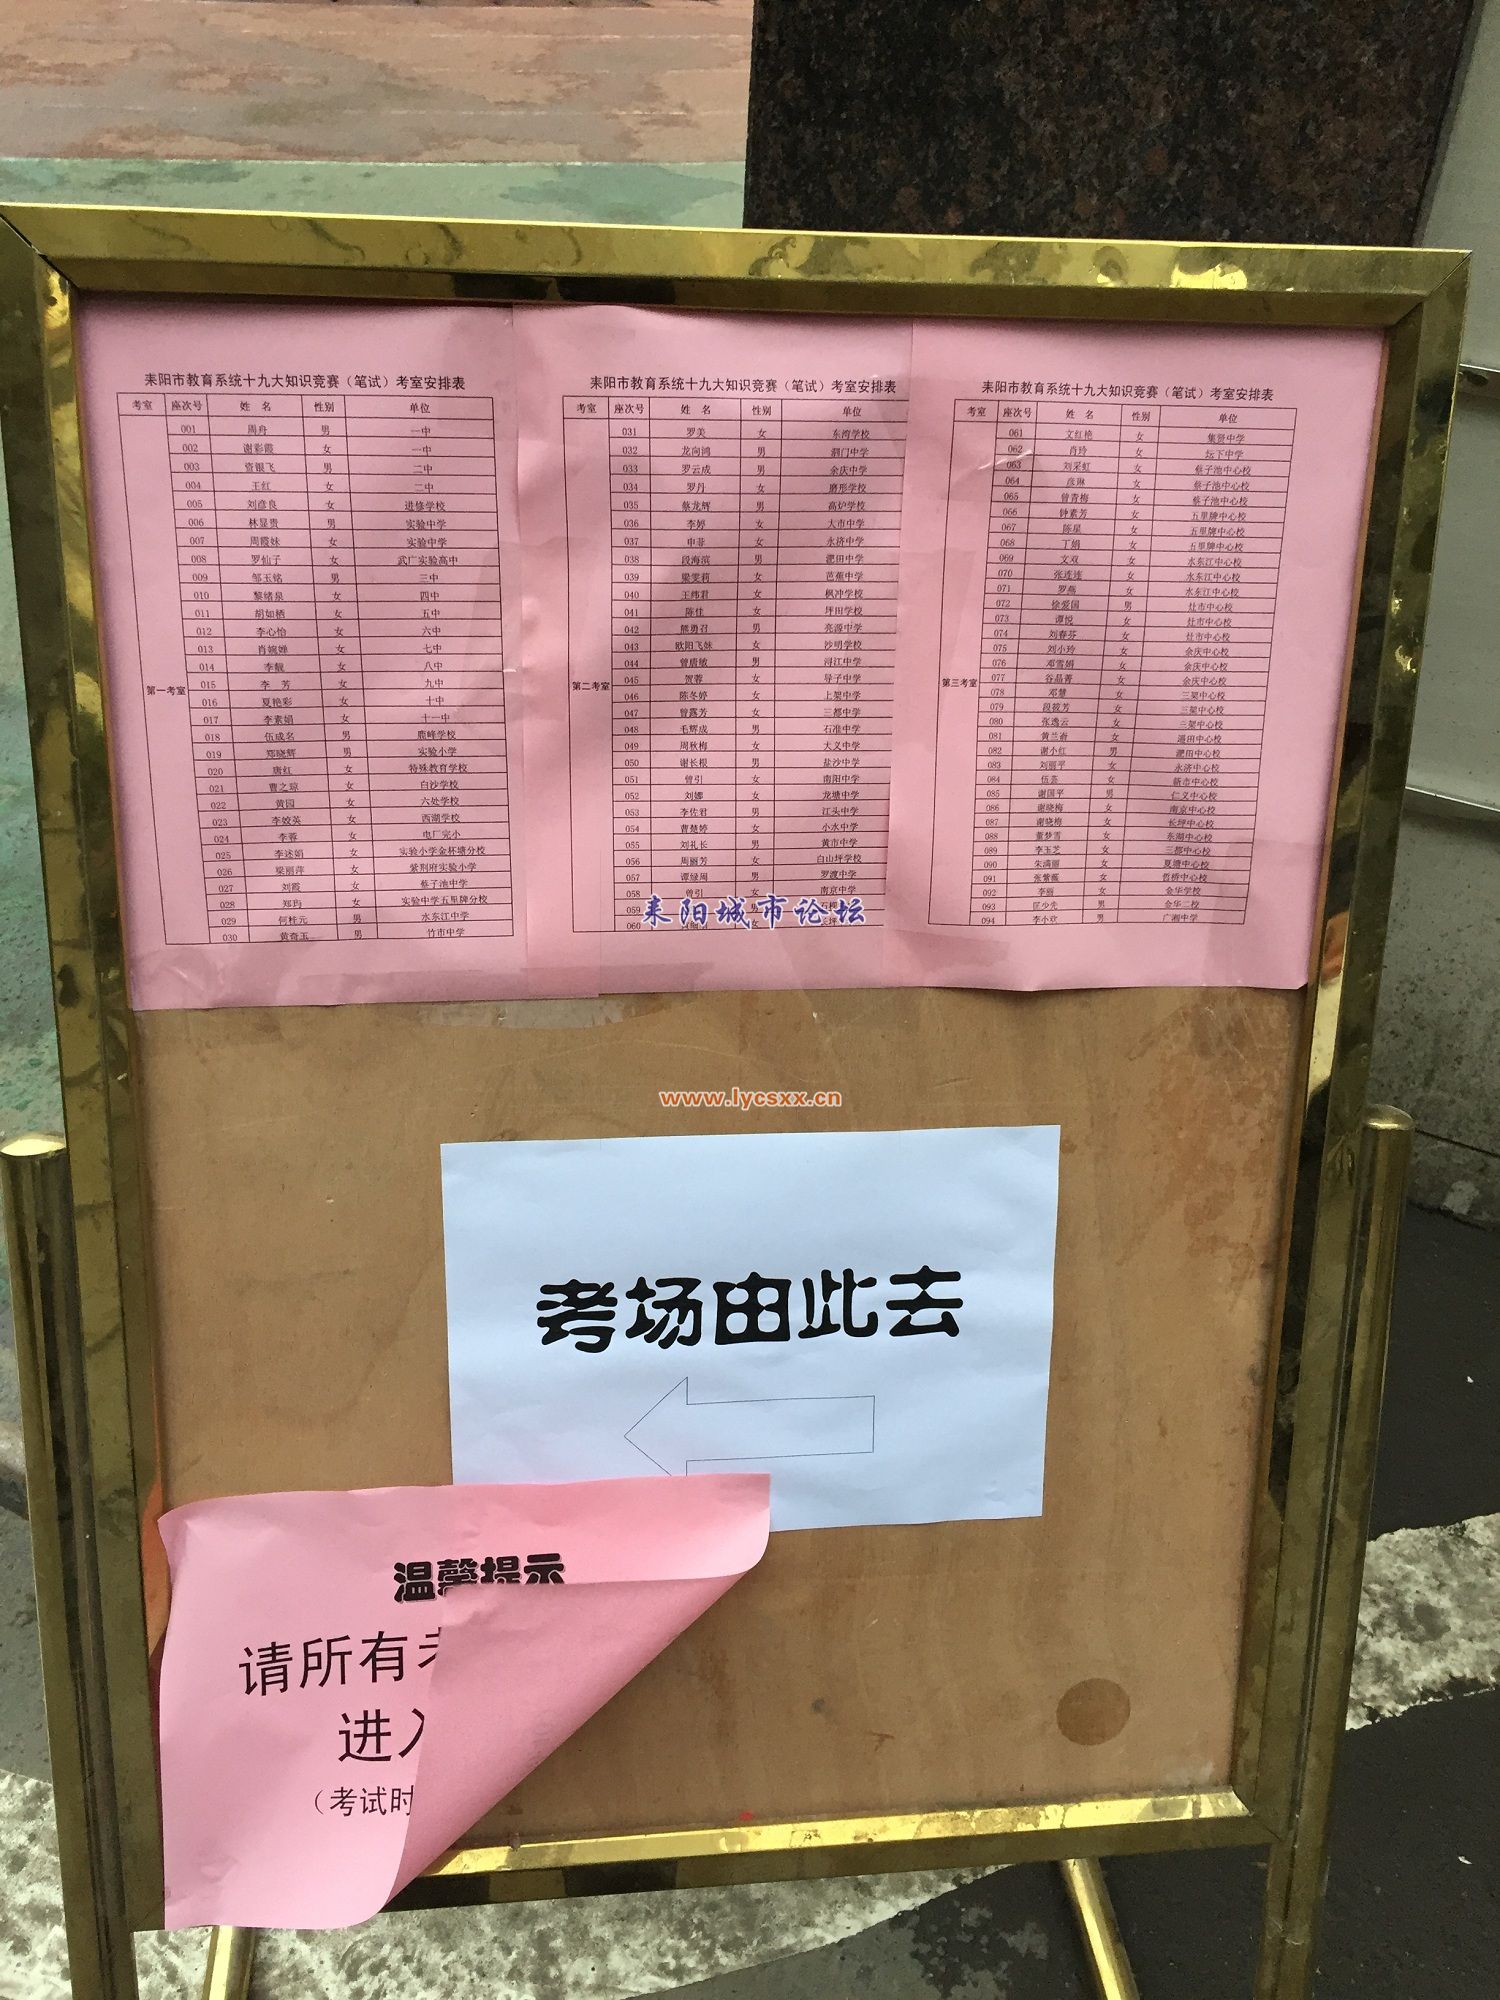 耒阳市教育系统十九大知识竞赛（笔试）考室安排表
考室 座次号 姓 名 性别 单位
第一考室
001 周舟 男 一中
002 谢彩霞 女 一中
003 资银飞 男 二中
004 王红 女 二中
005 刘彦良 女 进修学校
006 林显贵 男 实验中学
007 周霞妹 女 实验中学
008 罗仙子 女 武广实验高中
009 邹玉铭 男 三中
010 黎绪泉 女 四中
011 胡如栖 女 五中
012 李心怡 女 六中
013 肖婉婵 女 七中
014 李靓 女 八中
015 李 芳 女 九中
016 夏艳彩 女 十中
017 李素娟 女 十一中
018 伍成名 男 鹿峰学校
019 郑晓辉 男 实验小学
020 唐红 女 特殊教育学校
021 曹之琼 女 白沙学校
022 黄园 女 六处学校
023 李姣英 女 西湖学校
024 李蓉 女 电厂完小
025 李述娟 女 实验小学金杯塘分校
026 梁丽萍 女 紫荆府实验小学
027 刘霞 女 蔡子池中学
028 郑玙 女 实验中学五里牌分校
029 何桂元 男 水东江中学
030 黄奇玉 男 竹市中学
耒阳市教育系统十九大知识竞赛（笔试）考室安排表
考室 座次号 姓 名 性别 单位
第二考室
031 罗美 女 东湾学校
032 龙向鸿 男 泗门中学
033 罗云成 男 余庆中学
034 罗丹 女 磨形学校
035 蔡龙辉 男 高炉学校
036 李婷 女 大市中学
037 申菲 女 永济中学
038 段海滨 男 淝田中学
039 梁雯莉 女 芭蕉中学
040 王纬君 女 枫冲学校
041 陈佳 女 坪田学校
042 熊勇召 男 亮源中学
043 欧阳飞妹 女 沙明学校
044 曾唐敏 男 浔江中学
045 贺蓉 女 导子中学
046 陈冬婷 女 上架中学
047 曾露芳 女 三都中学
048 毛辉成 男 石准中学
049 周秋梅 女 大义中学
050 谢长根 男 盐沙中学
051 曾引 女 南阳中学
052 刘娜 女 龙塘中学
053 李佐君 男 江头中学
054 曹楚婷 女 小水中学
055 刘礼长 男 黄市中学
056 周丽芳 女 白山坪学校
057 谭绿周 男 罗渡中学
058 曾引 女 南京中学
059
060
耒阳市教育系统十九大知识竞赛（笔试）考室安排表
考室 座次号 姓 名 性别 单位
第三考室
061 文红艳 女 集贤中学
062 肖玲 女 坛下中学
063 刘采虹 女 蔡子池中心校
064 彦琳 女 蔡子池中心校
065 曾青梅 女 蔡子池中心校
066 钟素芳 女 五里牌中心校
067 陈星 女 五里牌中心校
068 丁娟 女 五里牌中心校
069 文双 女 水东江中心校
070 张连连 女 水东江中心校
071 罗燕 女 水东江中心校
072 徐爱国 男 灶市中心校
073 谭悦 女 灶市中心校
074 刘春芬 女 灶市中心校
075 刘小玲 女 余庆中心校
076 邓雪娟 女 余庆中心校
077 谷晶菁 女 余庆中心校
078 邓慧 女 三架中心校
079 段筱芳 女 三架中心校
080 张逸云 女 三架中心校
081 黄兰斋 女 遥田中心校
082 谢小红 男 淝田中心校
083 刘丽平 女 永济中心校
084 伍芸 女 新市中心校
085 谢国平 男 仁义中心校
086 谢晓梅 女 南京中心校
087 谢晓梅 女 长坪中心校
088 董梦雪 女 东湖中心校
089 李玉芝 女 三都中心校
090 朱满丽 女 夏塘中心校
091 张紫薇 女 哲桥中心校
092 李丽 女 金华学校
093 匡少先 男 金华二校
094 李小欢 男 广湘中学
耒阳城市论坛
www.lycsxx.cn
考场由此去
温馨提示
请所有考
进入
（考试时